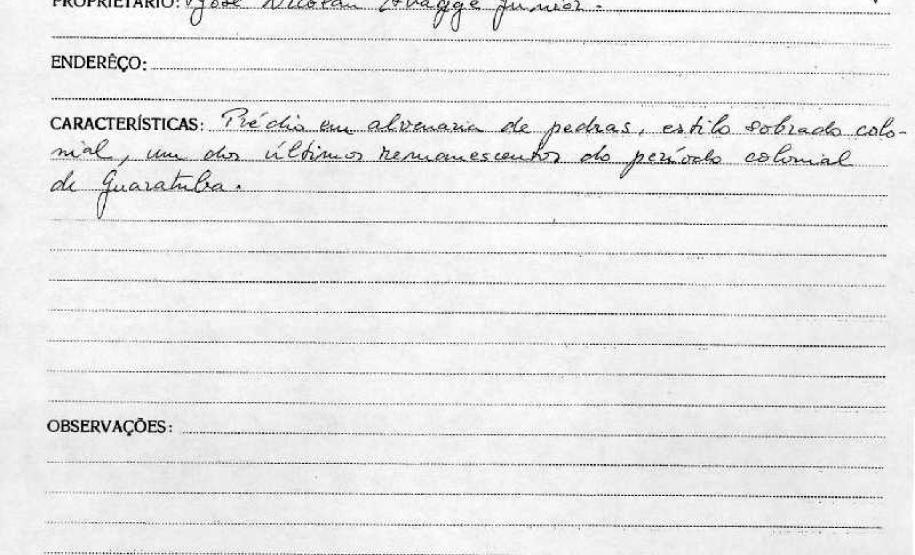 PROPRIETÁRIO: José Nicolau Junior.
ENDERÊÇO:
CARACTERÍSTICAS: Prédio em alvenaria de pedras, estilo sobrado colo-
nial, um dos últimos remanescentes do período colonial
de Guaratuba.
OBSERVAÇÕES: